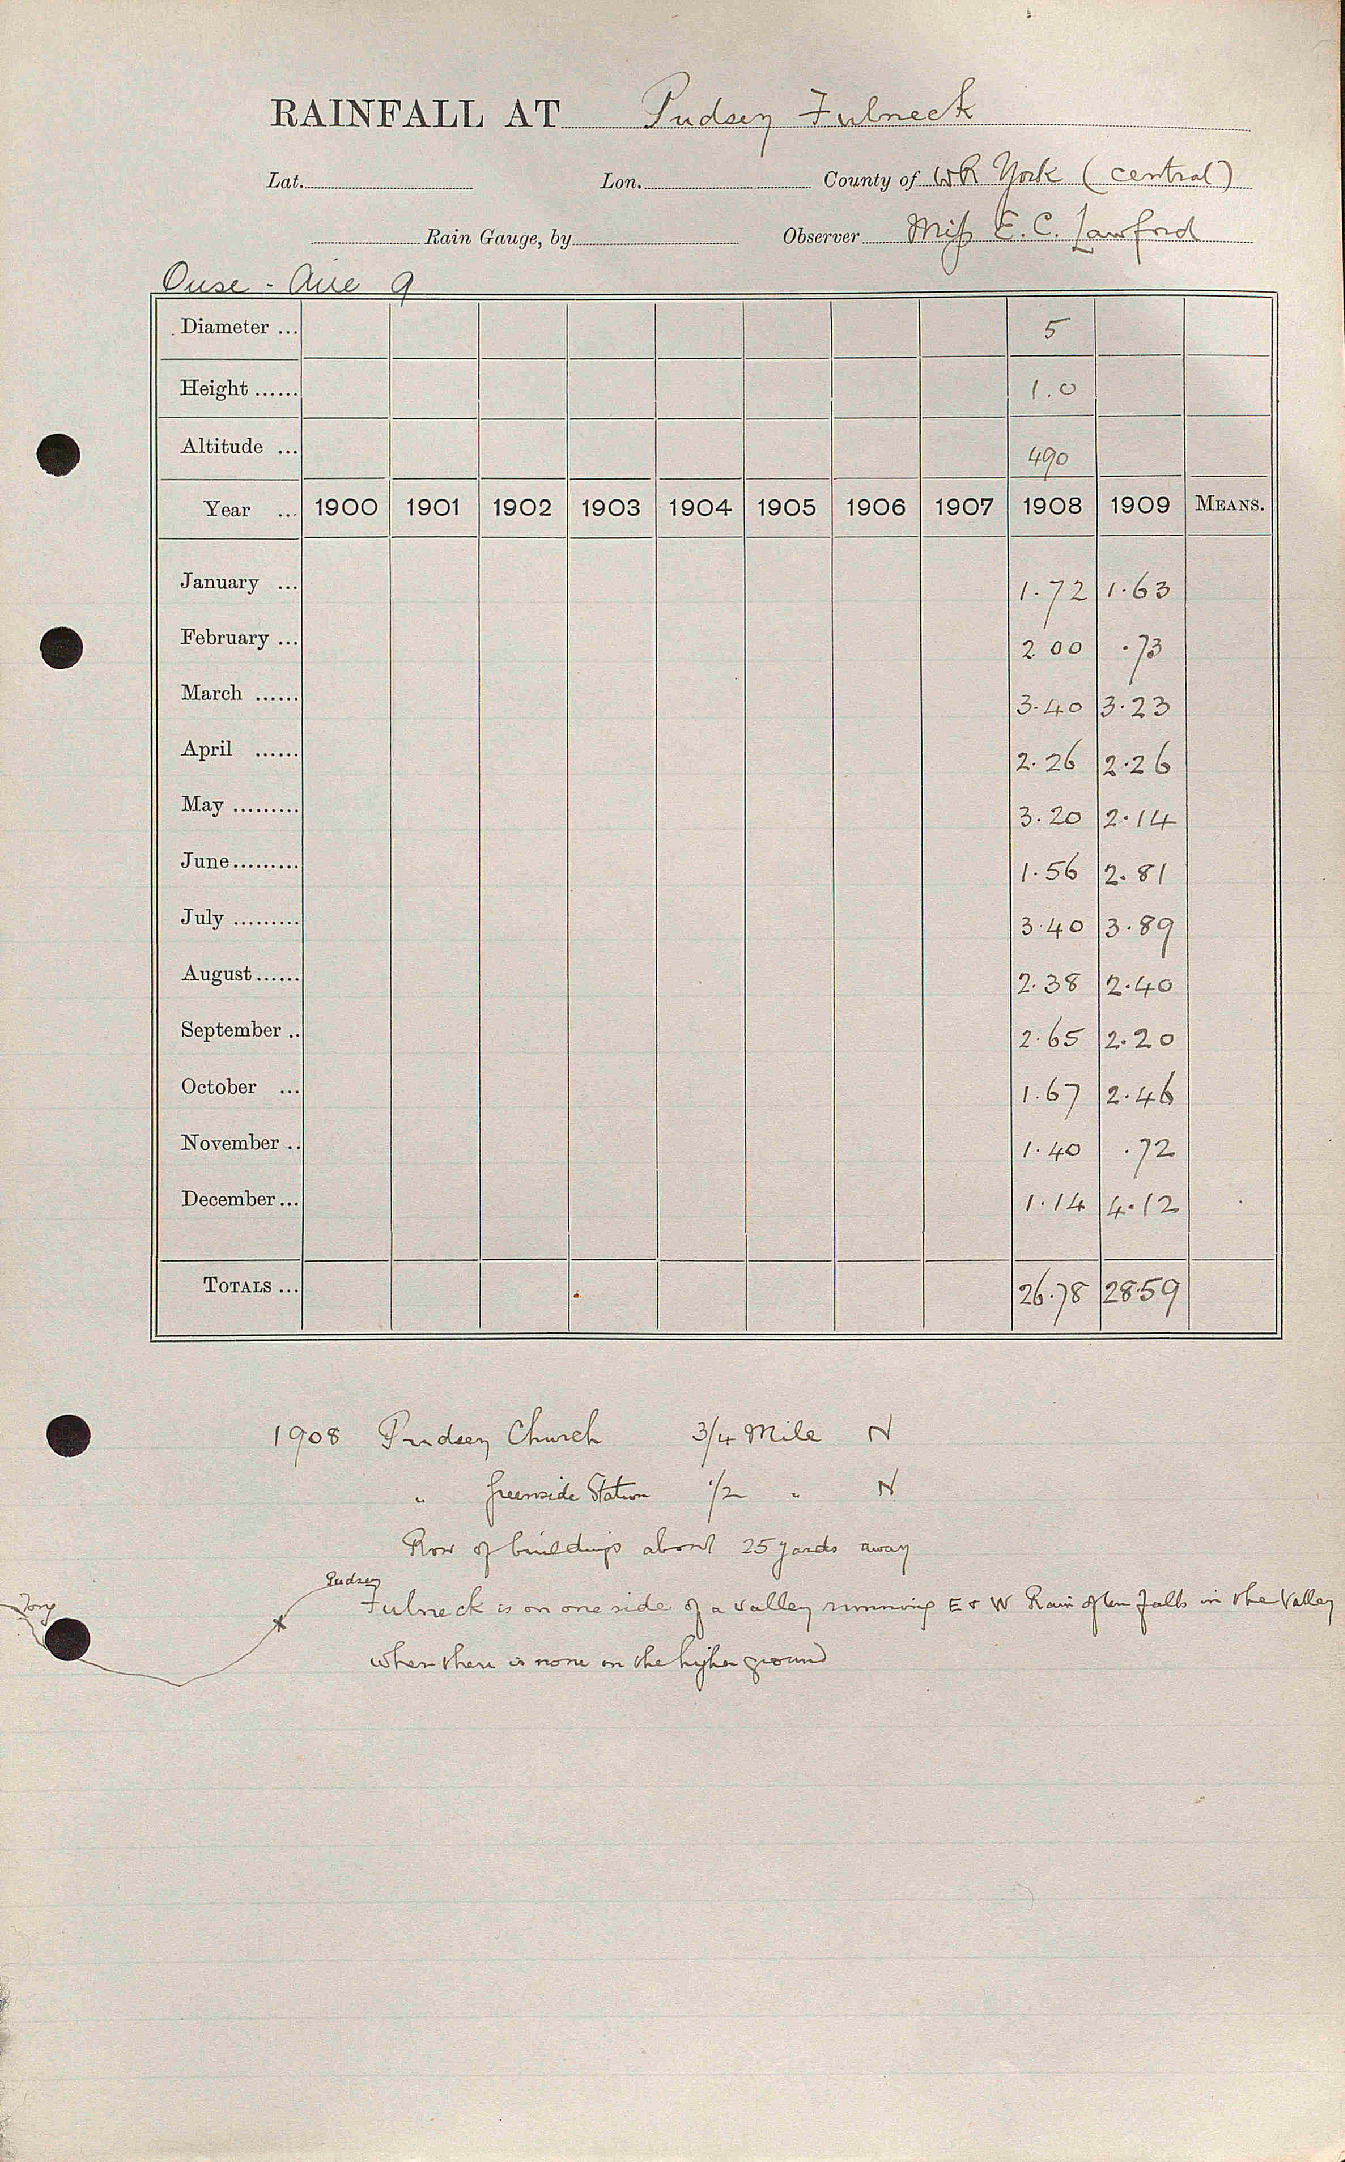 RAINFALL AT Pudsey Fulneck
Lat. Lon. County of WR York (central)
Rain Gauge, by Observer Miss E. C. Lawford
Ouse - Aire 9
Diameter ... 5
Height ...... 1.0
Altitude ... 490
Year ... 1900 1901 1902 1903 1904 1905 1906 1907 1908 1909 MEANS.
January ... 1.72 1.63
February ... 2 00 .73
March ...... 3.40 3.23
April ...... 2.26 2.26
May ......... 3.20 2.14
June ......... 1.56 2.81
July ......... 3.40 3.89
August ...... 2.38 2.40
September .. 2.65 2.20
October ... 1.67 2.46
November .. 1.40 .72
December ... 1.14 4.12
TOTALS ... 26.78 28.59
1908 Pudsey Church 3/4 Mile N
" Greenside Station 1/2 " N
Row of buildings about 25 yards away
Pudsey
Fulneck is on one side of a valley running E & W Rain often falls in the Valley
when there is none on the higher ground